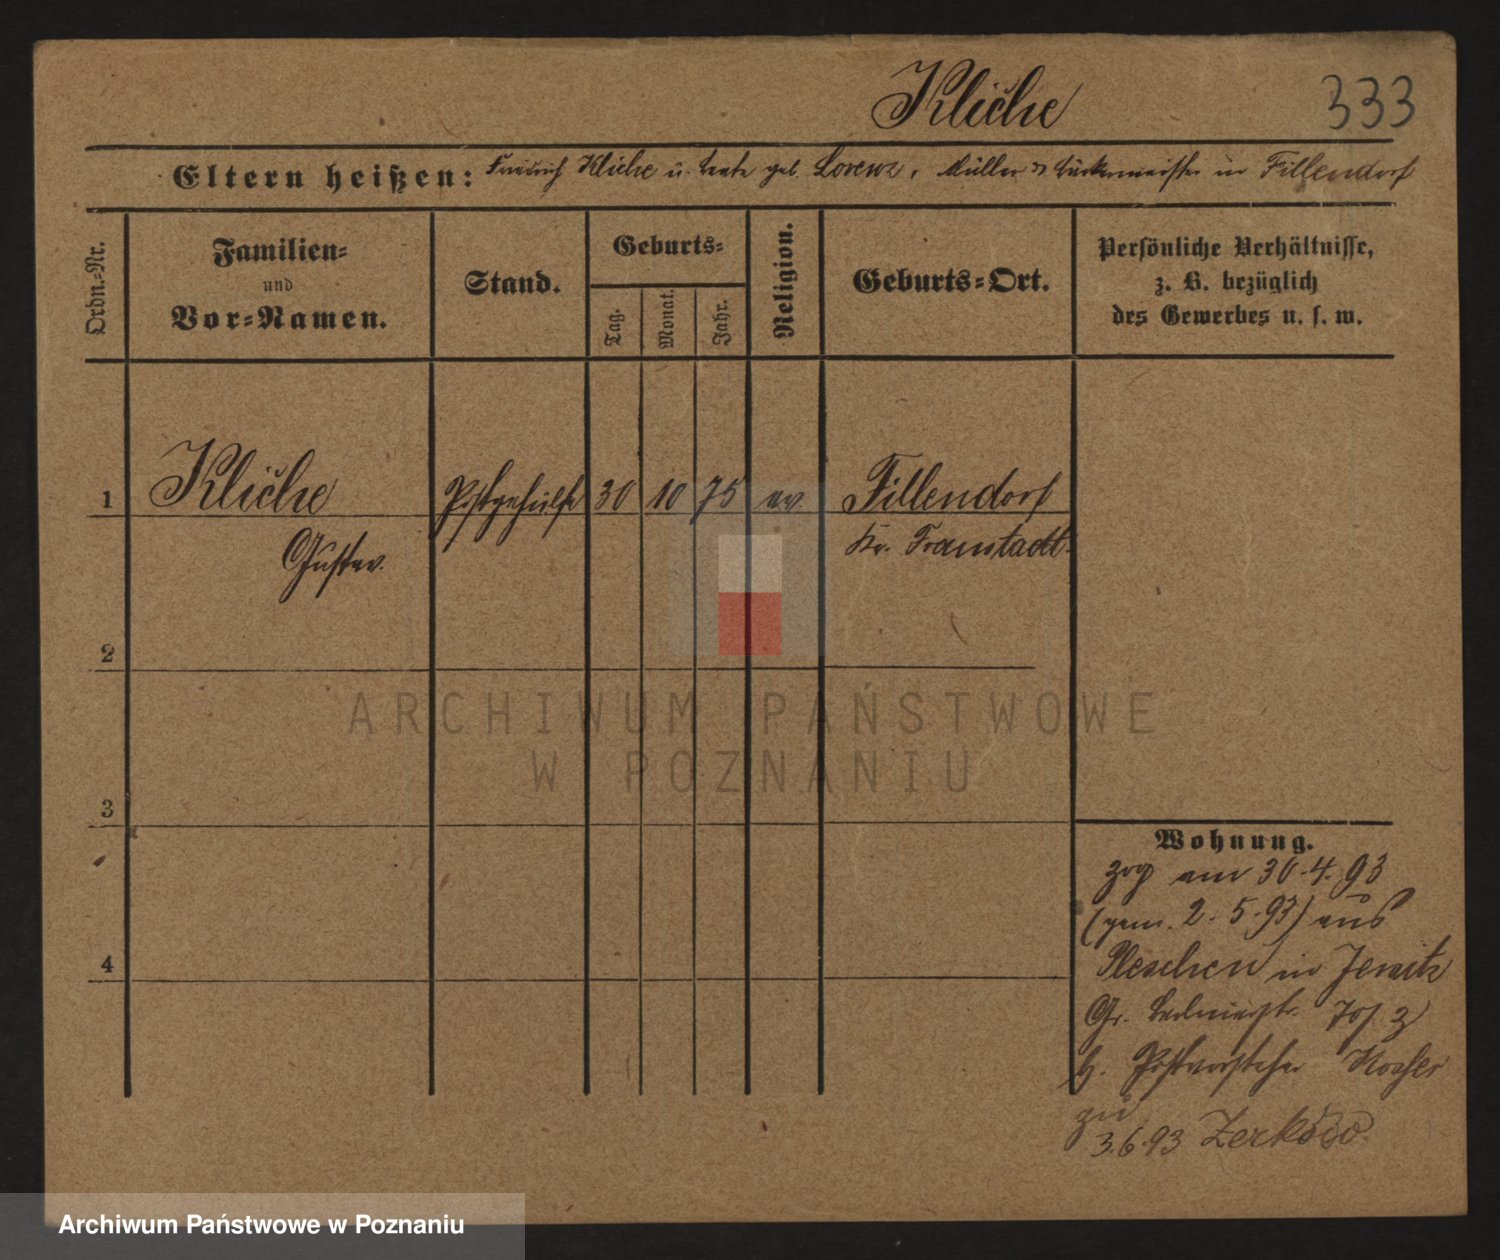 Kliche
333
Eltern heißen: Friedrich Kliche u. geb. Lorenz, Müller & Bäckermeister in Fillendorf
Ordn.-Nr.
Familien-
und
Vor-Namen.
Stand.
Geburts-
Tag.
Monat.
Jahr.
Religion.
Geburts-Ort.
Persönliche Verhältnisse,
z. B. bezüglich
des Gewerbes u. s. w.
1
Kliche
Gustav.
Postgehülfe
30
10
75
ev.
Fillendorf
Kr. Fraustadt.
2
3
4
Wohnung.
zog am 30.4.93
(gem. 2.5.93) aus
Pleschen in Jersitz
Gr.
b. Postvorsteher
zu
3.6.93 Zerkow
ARCHIWUM PAŃSTWOWE
W POZNANIU
Archiwum Państwowe w Poznaniu